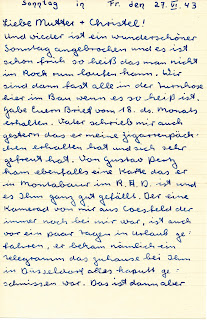 Sonntag in Fr. den 27. VI. 43
Liebe Mutter + Christel!
Und wieder ist ein wunderschöner
Sonntag angebrochen und es ist
schon früh so heiß das man nicht
im Rock rum laufen kann. Wir
sind dann fast alle in der Turnhose
hier im Bau wenn es so heiß ist.
Habe Euern Brief von 18. ds. Monats
erhalten. Vater schrieb mir auch
gestern das er meine Zigarrenpäck-
chen erhalten hat und sich sehr
gefreut hat. Von Gustav
kam ebenfalls eine Karte das er
in Montabaur im R.A.D. ist und
es Ihm ganz gut gefällt. Der eine
Kamerad von mir aus Coesfeld der
immer noch bei mir war, ist auch
vor ein paar Tagen in Urlaub ge-
fahren, er bekam nämlich ein
Telegramm das zuhause bei Ihm
in Düsseldorf alles kaputt ge-
schmissen war. Das ist dann aber